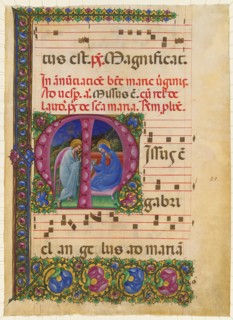 tus est. p̄x. Magnificat.
In ānūtiatiōe bt̄e marie v̄ginis.
Ad vesp̄. a. Missus ē. cū rel̄ de
laud. p̄x. de sc̄a maria. Tem. pl̄vt.
M
issus ē
gabri
el an ge lus ad mariā